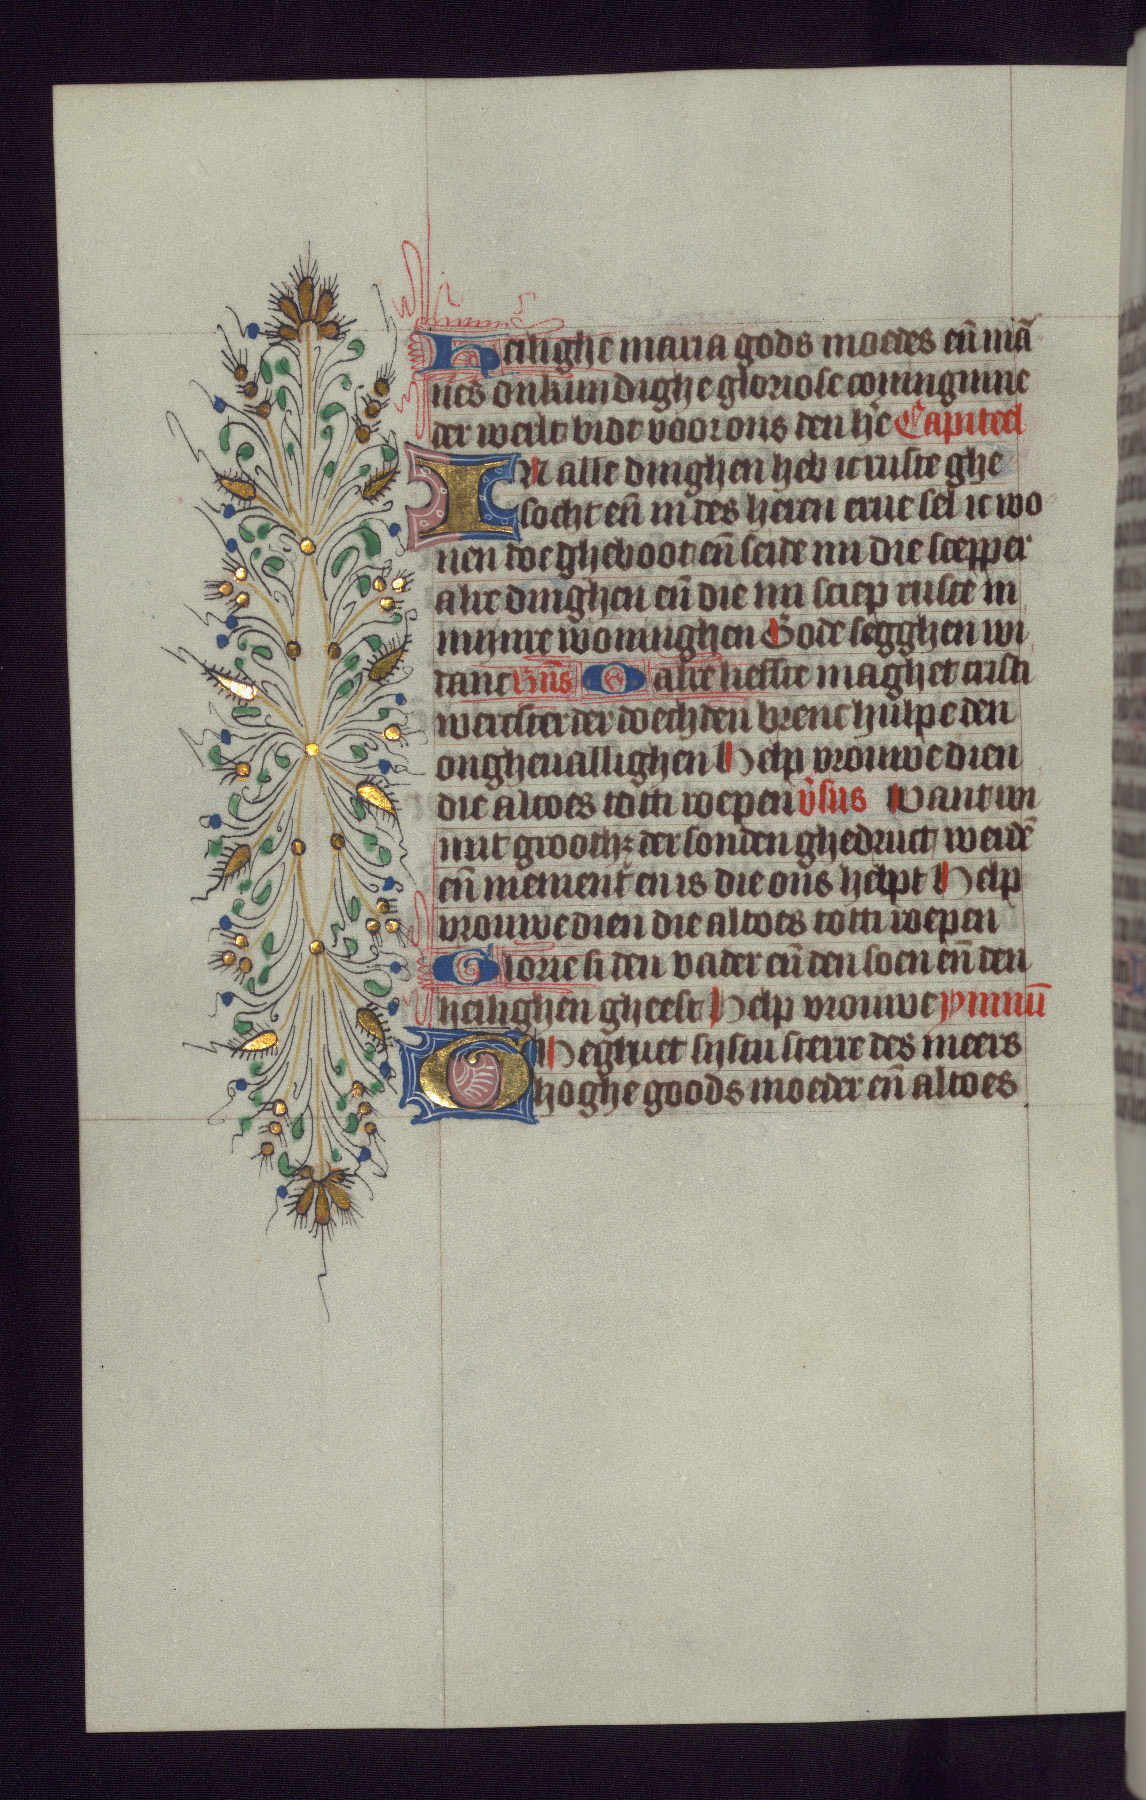 Heilighe maria gods moeder eñ mã
nes onkundighe gloriose coninginne
der werelt bidt voor ons den hẽe Capiteel
IN alle dinghen heb ic ruste ghe
socht eñ in des heren erue sel ic wo
nen doe gheboot eñ seide mi die scepper
alre dinghen eñ die mi sciep ruste in
minre woninghen Gode segghen wi
danc Rñs O alre liefste maghet cristi
wercster der doechden brenc hulpe den
ongheuallighen Help vrouwe dien
die altoes totti roepen v̾sus Want wi
mit grootheꝫ der sonden ghedruct werdẽ
eñ niement en is die ons helpt Help
vrouwe dien die altoes totti roepen
Glorie si den vader eñ den soen eñ den
heilighen gheest Help vrouwe ymnũ
GHegruet sijstu sterre des meers
hoghe goods moeder eñ altoes